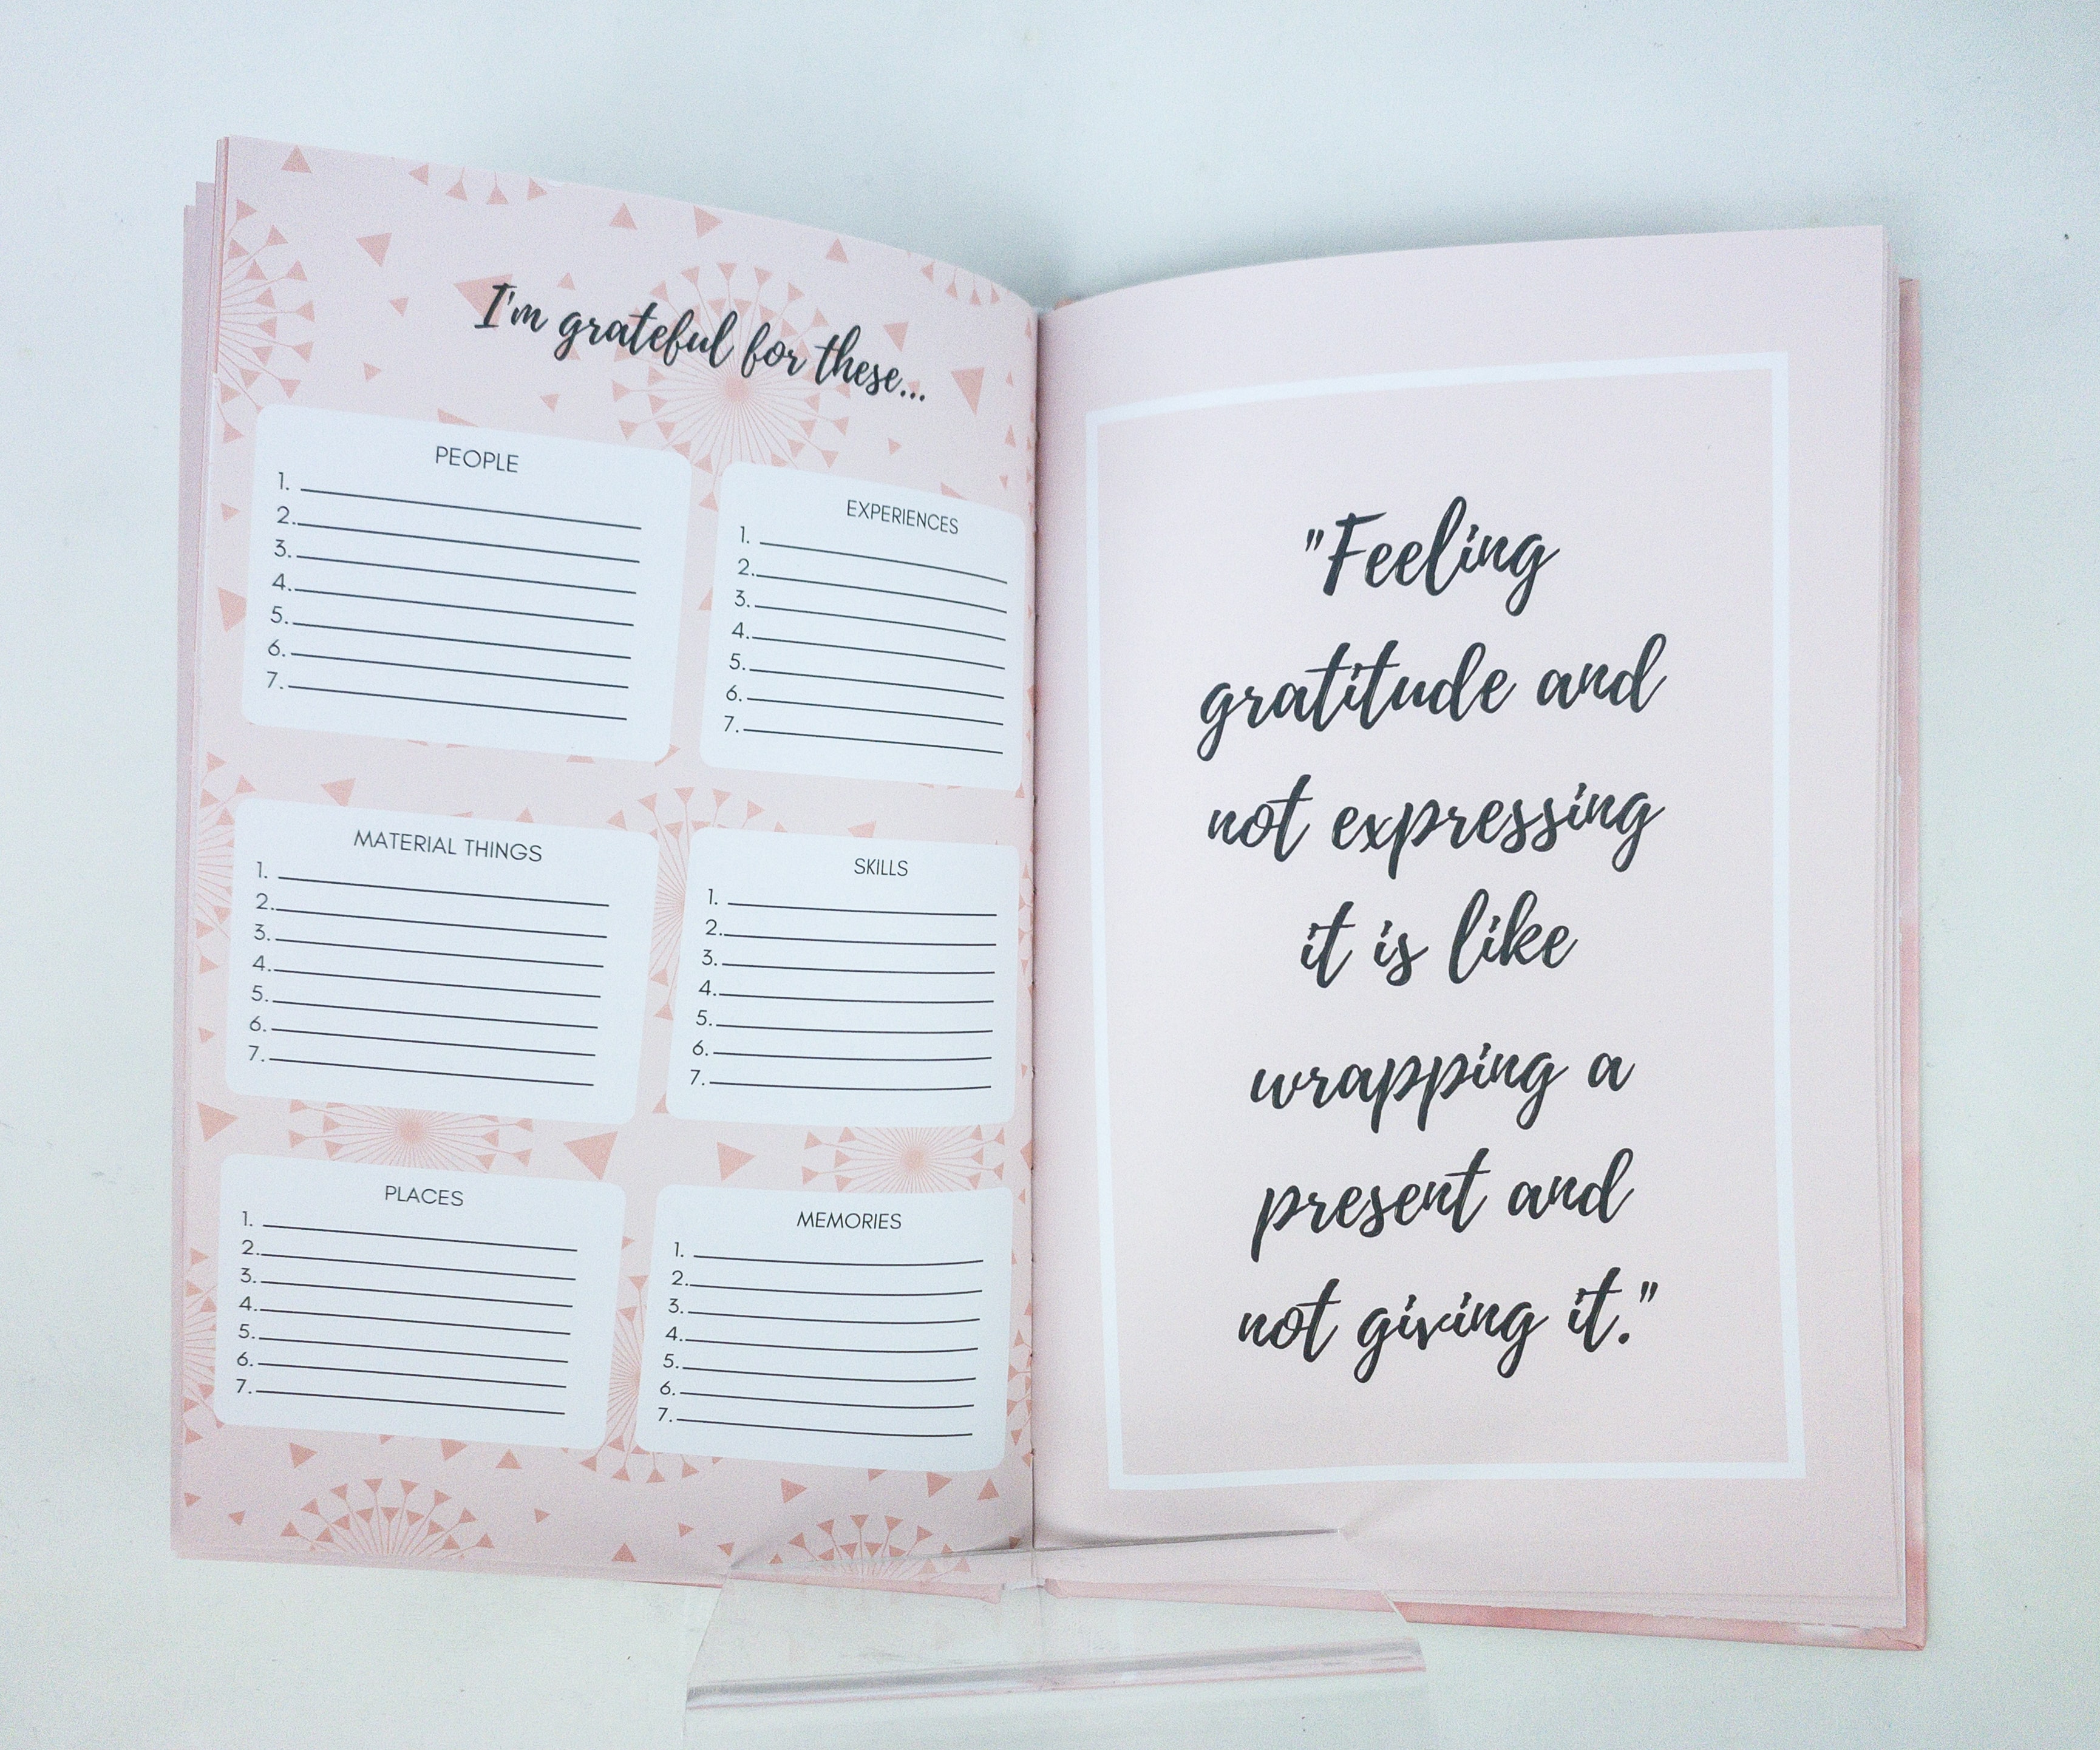 I'm grateful for these...
PEOPLE
1.
2.
3.
4.
5.
6.
7.
EXPERIENCES
1.
2.
3.
4.
5.
6.
7.
MATERIAL THINGS
1.
2.
3.
4.
5.
6.
7.
SKILLS
1.
2.
3.
4.
5.
6.
7.
PLACES
1.
2.
3.
4.
5.
6.
7.
MEMORIES
1.
2.
3.
4.
5.
6.
7.
"Feeling
gratitude and
not expressing
it is like
wrapping a
present and
not giving it."